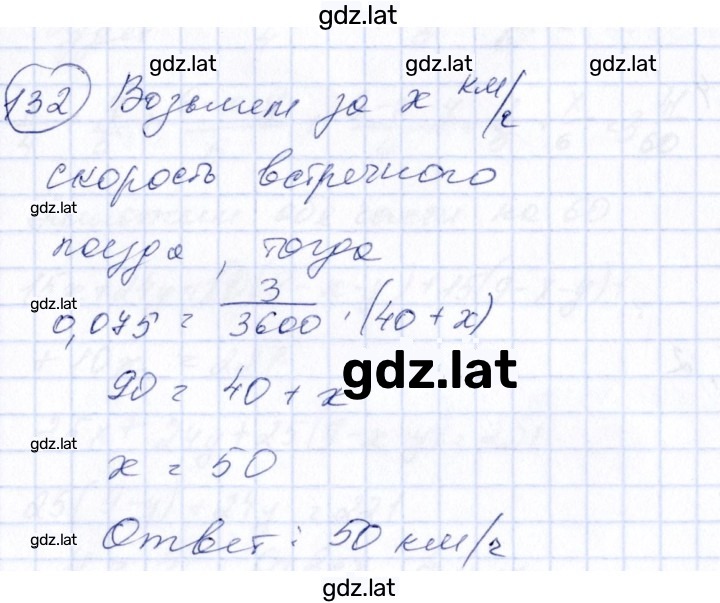 gdz.lat
gdz.lat gdz.lat gdz.lat
132 Возьмем за x км/ч
скорость встречного
gdz.lat
поезда, тогда
gdz.lat
0,075 = 3/3600 · (40 + x)
gdz.lat
90 = 40 + x
gdz.lat
x = 50
gdz.lat
Ответ: 50 км/ч
gdz.lat